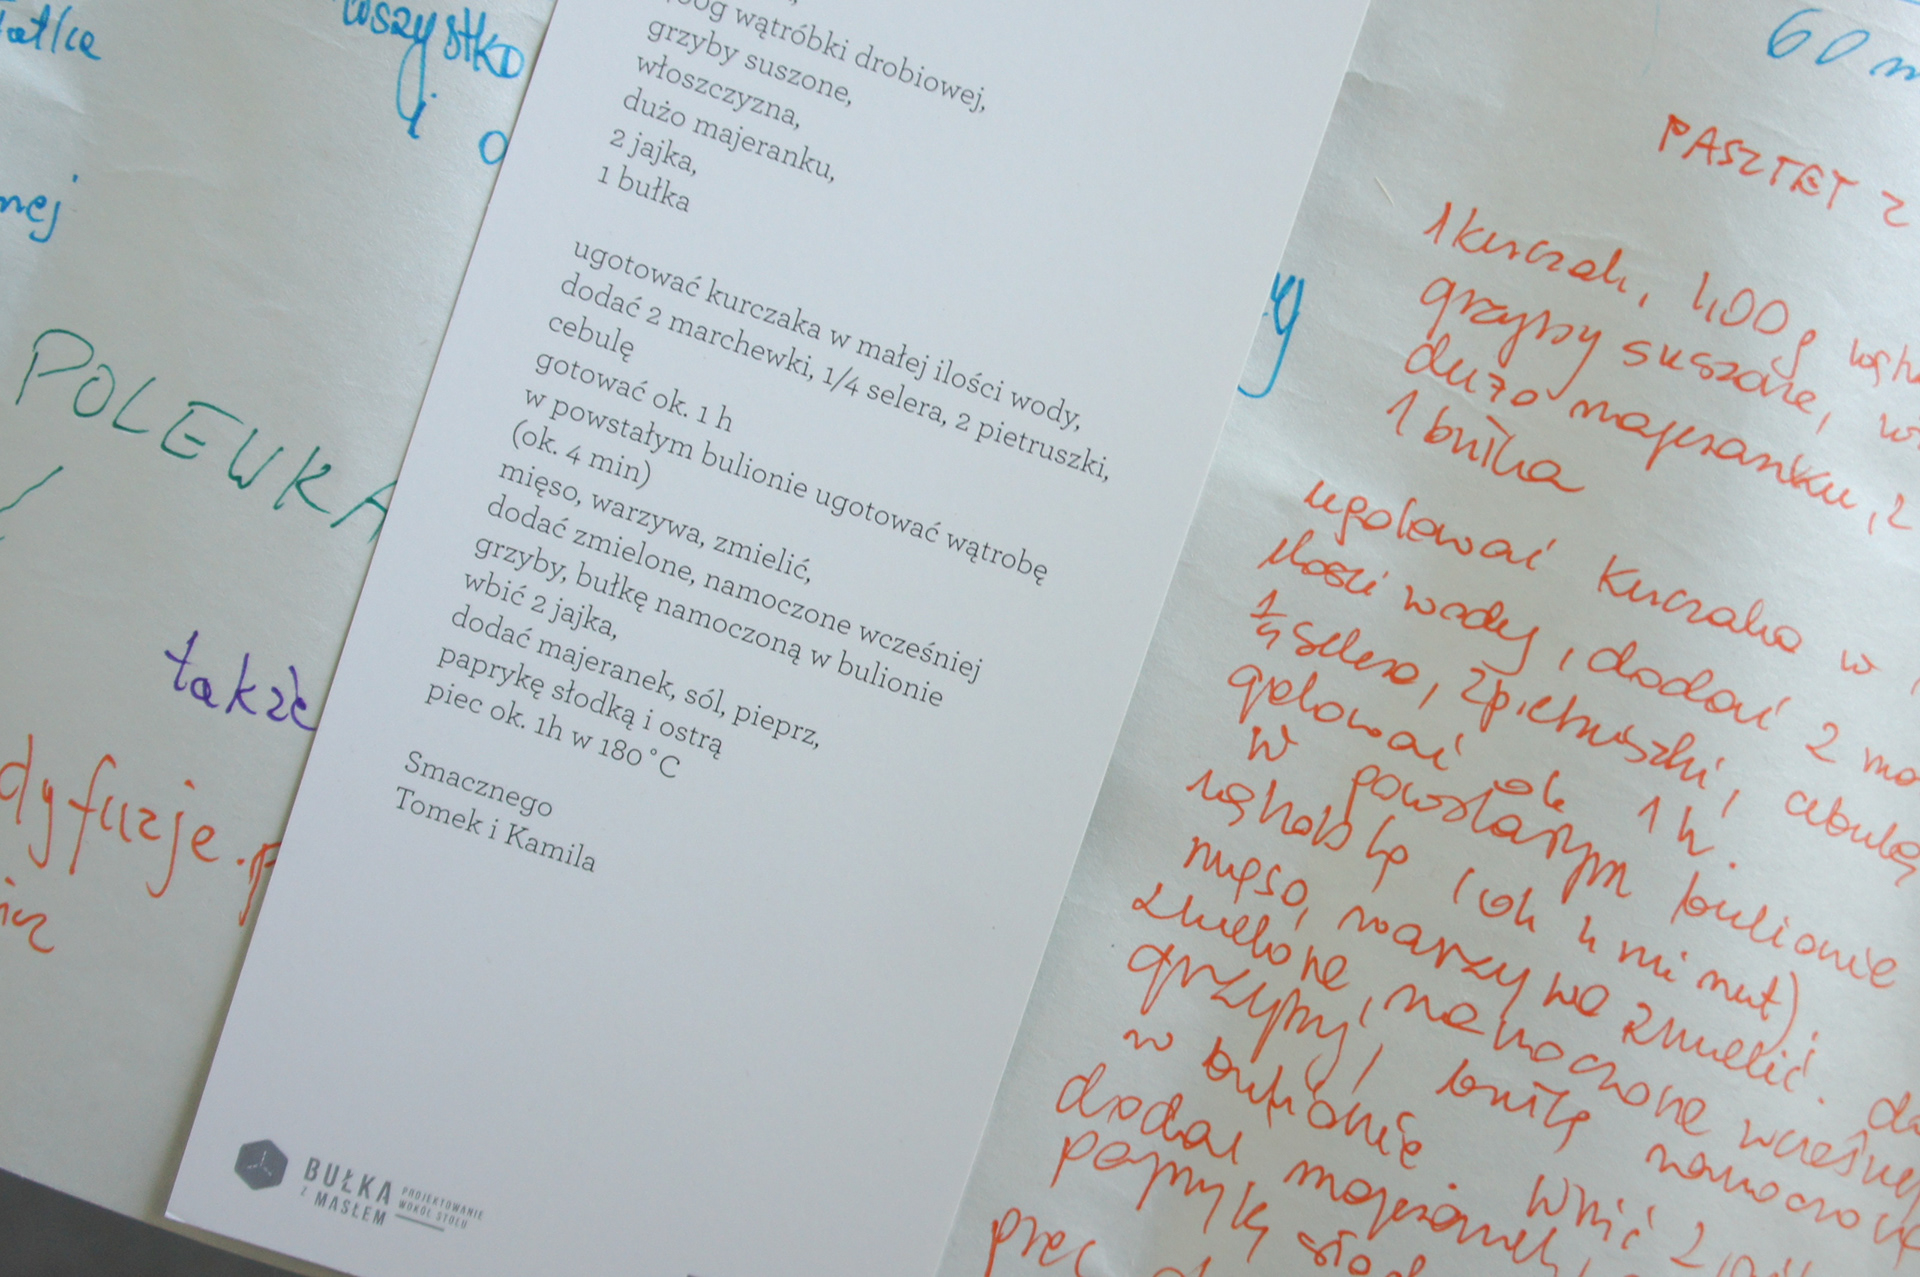 wątróbki drobiowej,
grzyby suszone,
włoszczyzna,
dużo majeranku,
2 jajka,
1 bułka
ugotować kurczaka w małej ilości wody,
dodać 2 marchewki, 1/4 selera, 2 pietruszki,
cebulę
gotować ok. 1 h
w powstałym bulionie ugotować wątrobę
(ok. 4 min)
mięso, warzywa, zmielić,
dodać zmielone, namoczone wcześniej
grzyby, bułkę namoczoną w bulionie
wbić 2 jajka,
dodać majeranek, sól, pieprz,
paprykę słodką i ostrą
piec ok. 1h w 180 °C
Smacznego
Tomek i Kamila
BUŁKA
Z MASŁEM
PROJEKTOWANIE
WOKÓŁ STOŁU
wszystko
i o
nej
POLEWKA
także
dyfuzje.p
60 m
PASZTET Z
1 kurczak, 1,00g
grzyby suszone,
dużo majeranku, 2
1 bułka
ugotować kurczaka w
ilości wody, dodać 2 ma
1/4 selera, 2 pietruszki, cebulę
gotować ok 1 h.
w powstałym bulionie
wątrobę (ok 4 minut).
mięso, warzywa zmielić. do
zmielone, namoczone wcześniej
grzyby, bułkę namoczo
w bulionie. Wbić 2
dodać majeranek,
paprykę słod
piec